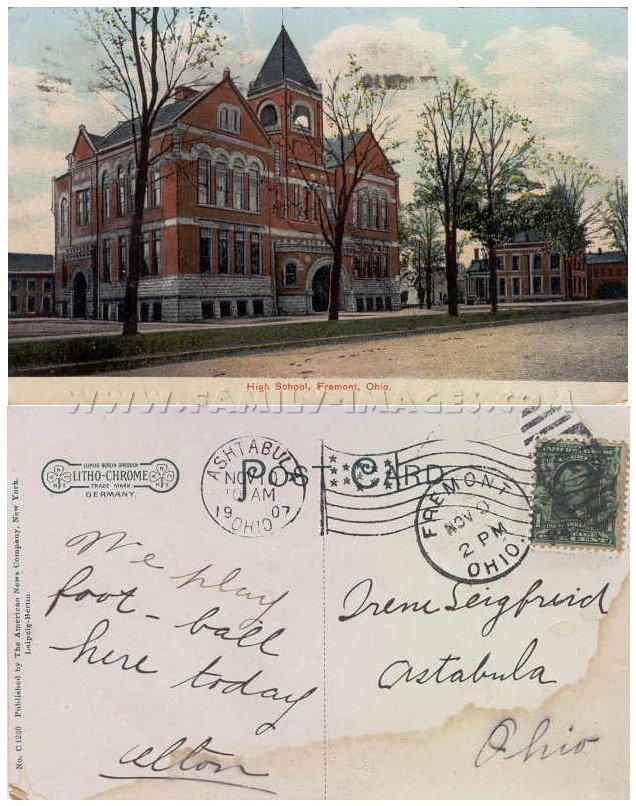 High School, Fremont, Ohio.
WWW.FAMILY-IMAGES.COM
POST CARD
LEIPZIG BERLIN DRESDEN
LITHO-CHROME
TRADE MARK
GERMANY.
ASHTABULA
NOV 10
AM
1907
OHIO
FREMONT
NOV
2 PM
OHIO.
We play
foot-ball
here today
Alton
Irene Seigfreid
Astabula
Ohio
No. C1220 Published by The American News Company, New York.
Leipzig-Berlin